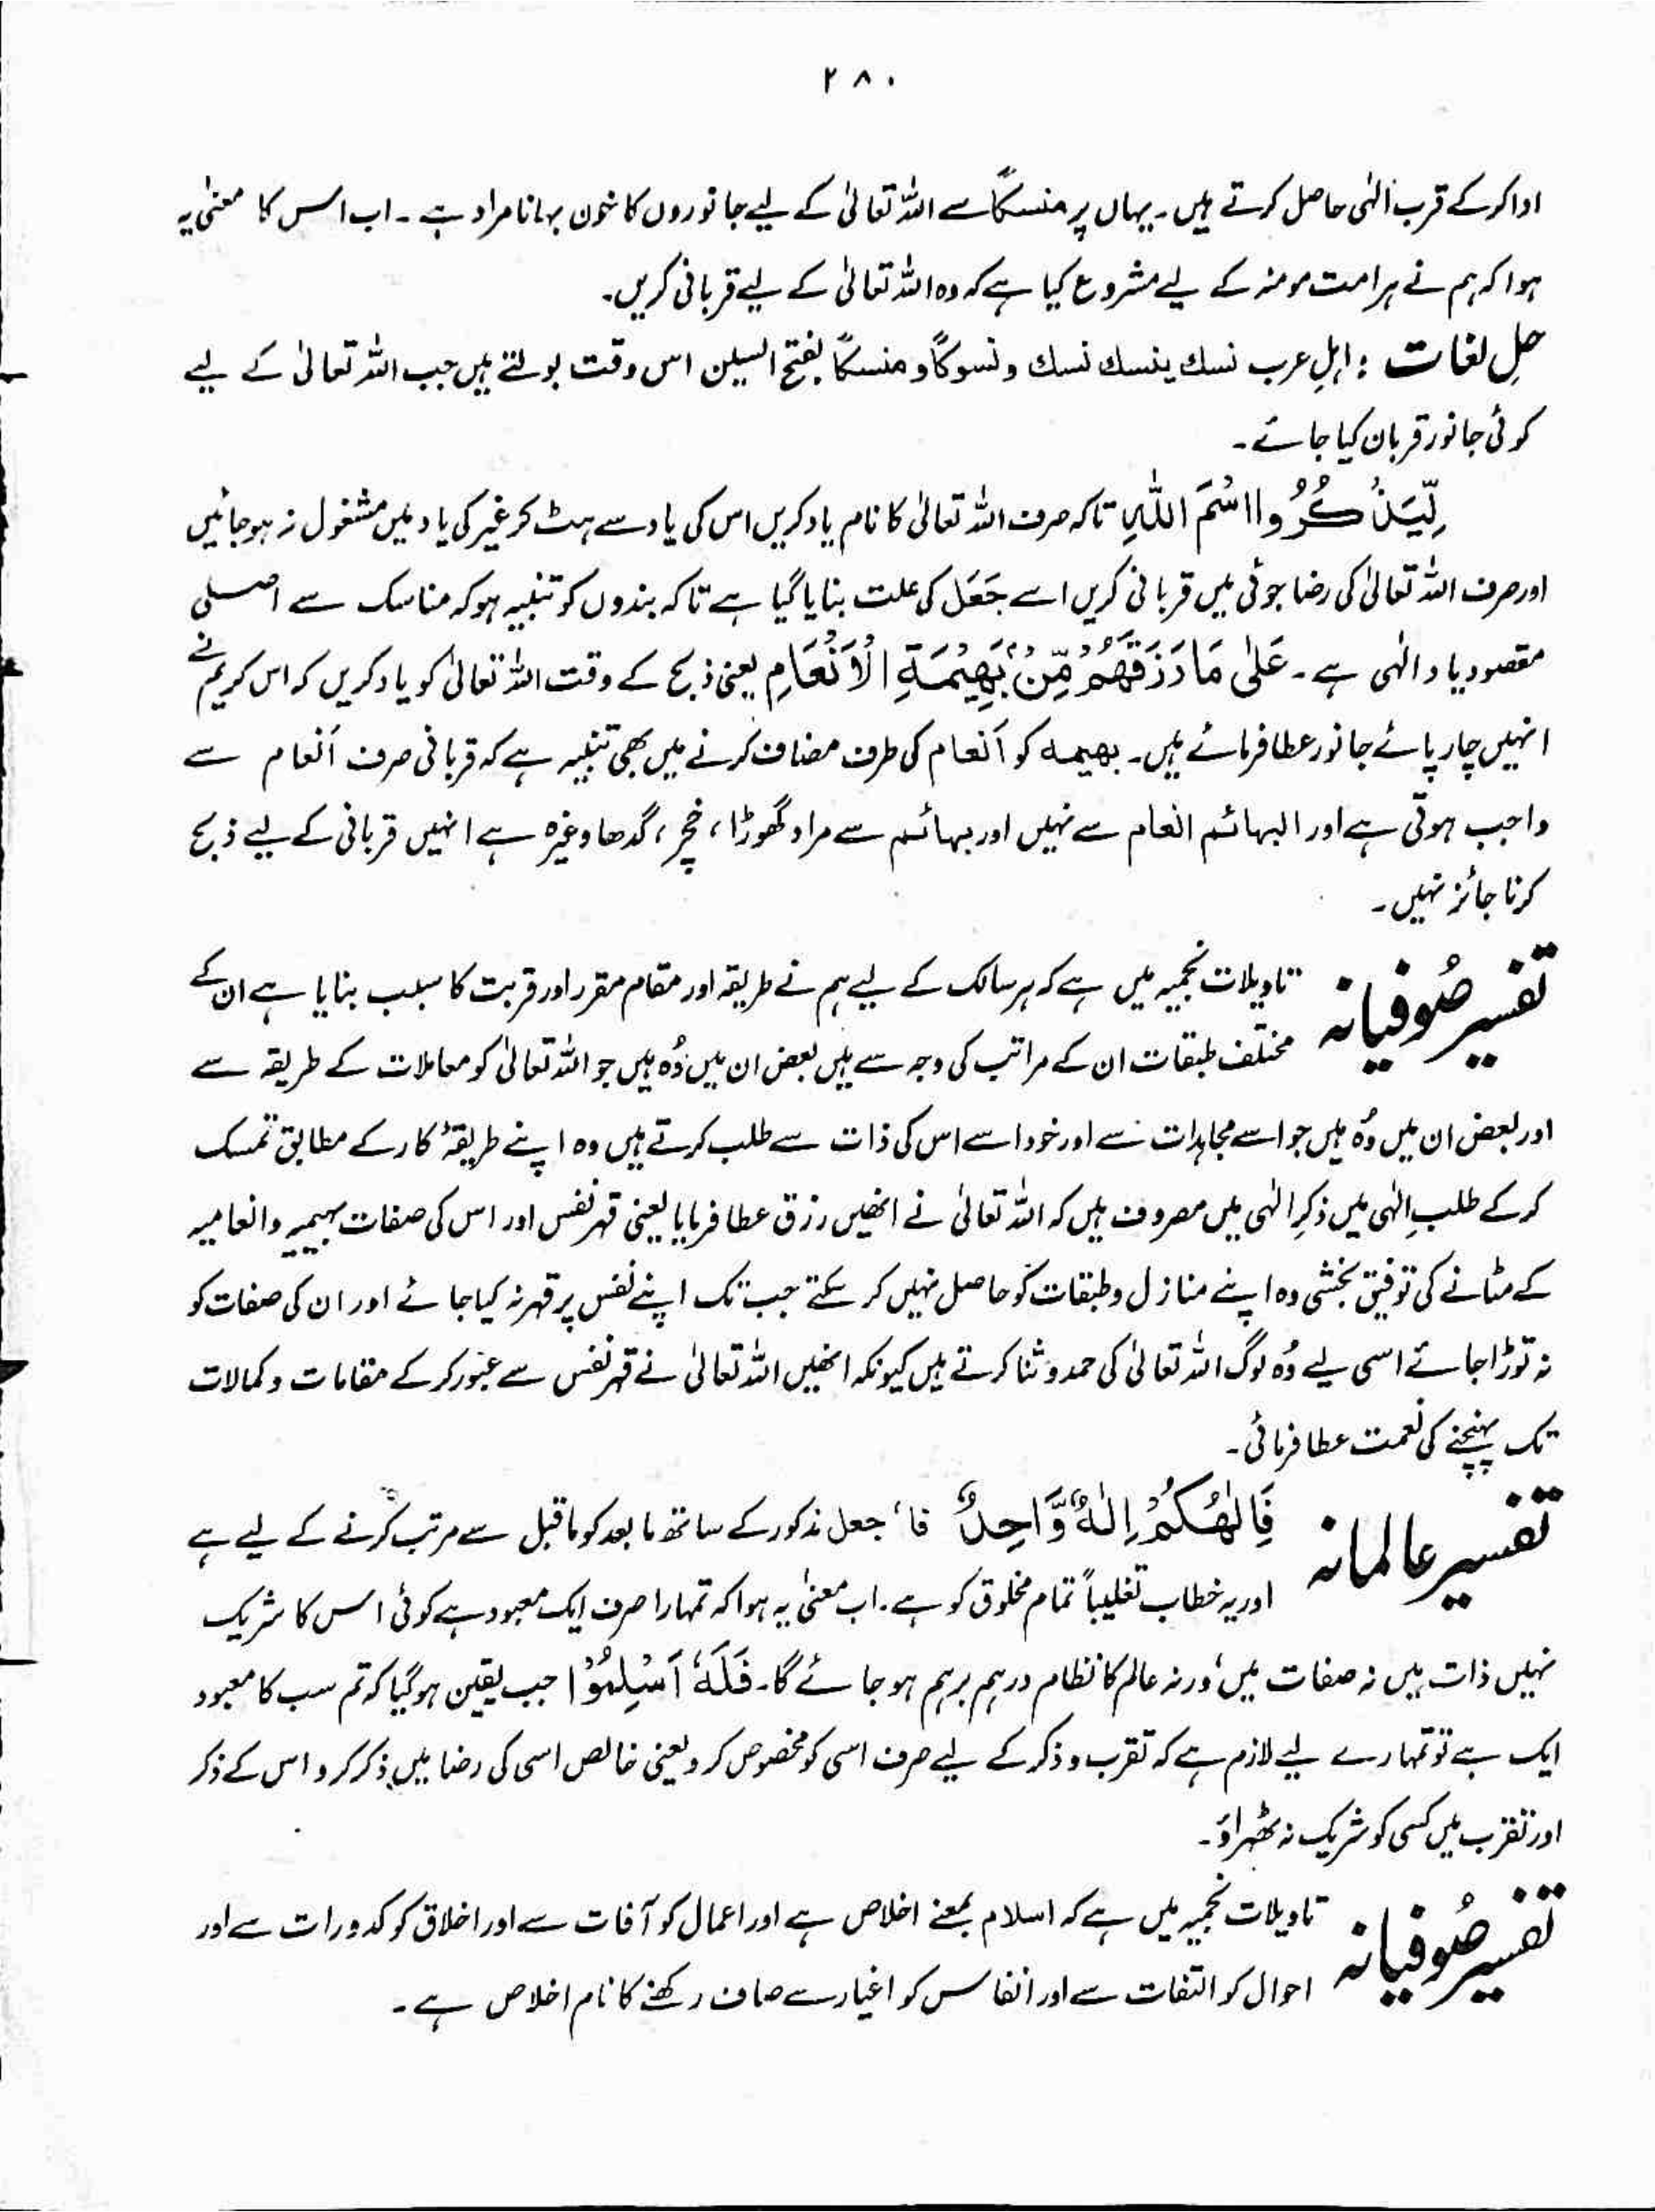 ۲۸۰
ادا کر کے قرب الٰہی حاصل کرتے ہیں۔ یہاں پر منسکًا سے اللہ تعالیٰ کے لیے جانوروں کا خون بہانا مراد ہے ۔ اب اس کا معنیٰ یہ
ہوا کہ ہم نے ہر امت مومنہ کے لیے مشروع کیا ہے کہ وہ اللہ تعالیٰ کے لیے قربانی کریں۔
حلِ لغات : اہلِ عرب نسك ینسك نسك و نسوکًا و منسکًا بفتح السین اس وقت بولتے ہیں جب اللہ تعالیٰ کے لیے
کوئی جانور قربان کیا جائے ۔
لِّیَذْكُرُوا اسْمَ اللّٰهِ تاکہ صرف اللہ تعالیٰ کا نام یاد کریں اس کی یاد سے ہٹ کر غیر کی یاد میں مشغول نہ ہو جائیں
اور صرف اللہ تعالیٰ کی رضا جوئی میں قربانی کریں اسے جَعَل کی علت بنایا گیا ہے تاکہ بندوں کو تنبیہ ہو کہ مناسک سے اصلی
مقصود یاد الٰہی ہے ۔ عَلٰى مَا رَزَقَهُمْ مِّنْۢ بَهِیْمَةِ الْاَنْعَامِ یعنی ذبح کے وقت اللہ تعالیٰ کو یاد کریں کہ اس کریم نے
انہیں چار پائے جانور عطا فرمائے ہیں۔ بھیمه کو اَنعام کی طرف مضاف کرنے میں بھی تنبیہ ہے کہ قربانی صرف اَنعام سے
واجب ہوتی ہے اور البہائم انعام سے نہیں اور بہائم سے مراد گھوڑا ، خچر ، گدھا وغیرہ ہے انہیں قربانی کے لیے ذبح
کرنا جائز نہیں ۔
تفسیر صُوفیانہ تاویلات نجمیہ میں ہے کہ ہر سالک کے لیے ہم نے طریقہ اور مقام مقرر اور قربت کا سبب بنایا ہے ان کے
مختلف طبقات ان کے مراتب کی وجہ سے ہیں بعض ان میں وُہ ہیں جو اللہ تعالیٰ کو معاملات کے طریقہ سے
اور بعض ان میں وُہ ہیں جو اسے مجاہدات سے اور خود اسے اس کی ذات سے طلب کرتے ہیں وہ اپنے طریقۂ کار کے مطابق تمسک
کر کے طلبِ الٰہی میں ذکرِ الٰہی میں مصروف ہیں کہ اللہ تعالیٰ نے انھیں رزق عطا فرمایا یعنی قہر نفس اور اس کی صفات بہیمیہ و انعامیہ
کے مٹانے کی توفیق بخشی وہ اپنے منازل و طبقات کو حاصل نہیں کر سکتے جب تک اپنے نفس پر قہر نہ کیا جائے اور ان کی صفات کو
نہ توڑا جائے اسی لیے وُہ لوگ اللہ تعالیٰ کی حمد و ثنا کرتے ہیں کیونکہ انھیں اللہ تعالیٰ نے قہر نفس سے عبور کر کے مقامات و کمالات
تک پہنچنے کی نعمت عطا فرمائی ۔
تفسیر عالمانہ فَاِلٰهُكُمْ اِلٰهٌ وَّاحِدٌ فاء جعل مذکور کے ساتھ مابعد کو ماقبل سے مرتب کرنے کے لیے ہے
اور یہ خطاب تغلیباً تمام مخلوق کو ہے ۔ اب معنیٰ یہ ہوا کہ تمہارا صرف ایک معبود ہے کوئی اس کا شریک
نہیں ذات میں نہ صفات میں ، ورنہ عالم کا نظام درہم برہم ہو جائے گا۔ فَلَهٗۤ اَسْلِمُوْا جب یقین ہو گیا کہ تم سب کا معبود
ایک ہے تو تمہارے لیے لازم ہے کہ تقرب و ذکر کے لیے صرف اسی کو مخصوص کرو یعنی خالص اسی کی رضا میں ذکر کرو اس کے ذکر
اور تقرب میں کسی کو شریک نہ ٹھہراؤ ۔
تفسیر صُوفیانہ تاویلات نجمیہ میں ہے کہ اسلام بمعنے اخلاص ہے اور اعمال کو آفات سے اور اخلاق کو کدورات سے اور
احوال کو التفات سے اور انفاس کو اغیار سے صاف رکھنے کا نام اخلاص ہے ۔